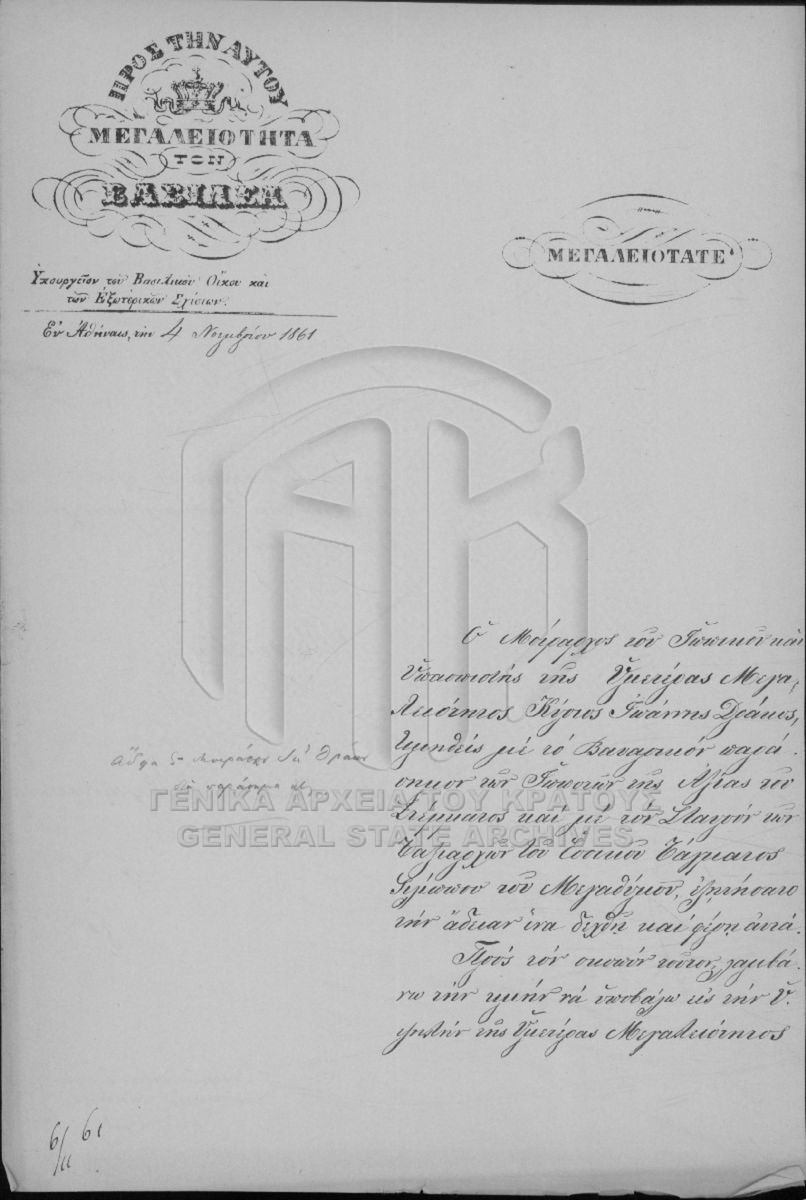 ΠΡΟΣ ΤΗΝ ΑΥΤΟΥ
ΜΕΓΑΛΕΙΟΤΗΤΑ
ΤΟΝ
ΒΑΣΙΛΕΑ
Ὑπουργεῖον τοῦ Βασιλικοῦ Οἴκου καὶ
τῶν Ἐξωτερικῶν Σχέσεων.
Ἐν Ἀθήναις, τὴν 4 Νοεμβρίου 1861
ΜΕΓΑΛΕΙΟΤΑΤΕ
Ὁ Μοίραρχος τοῦ Ἱππικοῦ καὶ
Ὑπασπιστὴς τῆς Ὑμετέρας Μεγα,
λειότητος Κύριος Ἰωάννης Δράκος,
τιμηθεὶς μὲ τὸ Βαυαρικὸν παρά
σημον τῶν Ἱπποτῶν τῆς Ἀξίας τοῦ
Στέμματος καὶ μὲ τὸν Σταυρὸν τῶν
Ταξιαρχῶν τοῦ Ἑσσικοῦ Τάγματος
Φιλίππου τοῦ Μεγαθύμου, ἐζητήσατο
τὴν ἄδειαν ἵνα δεχθῇ καὶ φέρῃ αὐτά.
Πρὸς τὸν σκοπὸν τοῦτον, λαμβά,
νω τὴν τιμὴν νὰ ὑποβάλω εἰς τὴν Ὑ,
ψηλὴν τῆς Ὑμετέρας Μεγαλειότητος
ΓΕΝΙΚΑ ΑΡΧΕΙΑ ΤΟΥ ΚΡΑΤΟΥΣ
GENERAL STATE ARCHIVES
6/11 61